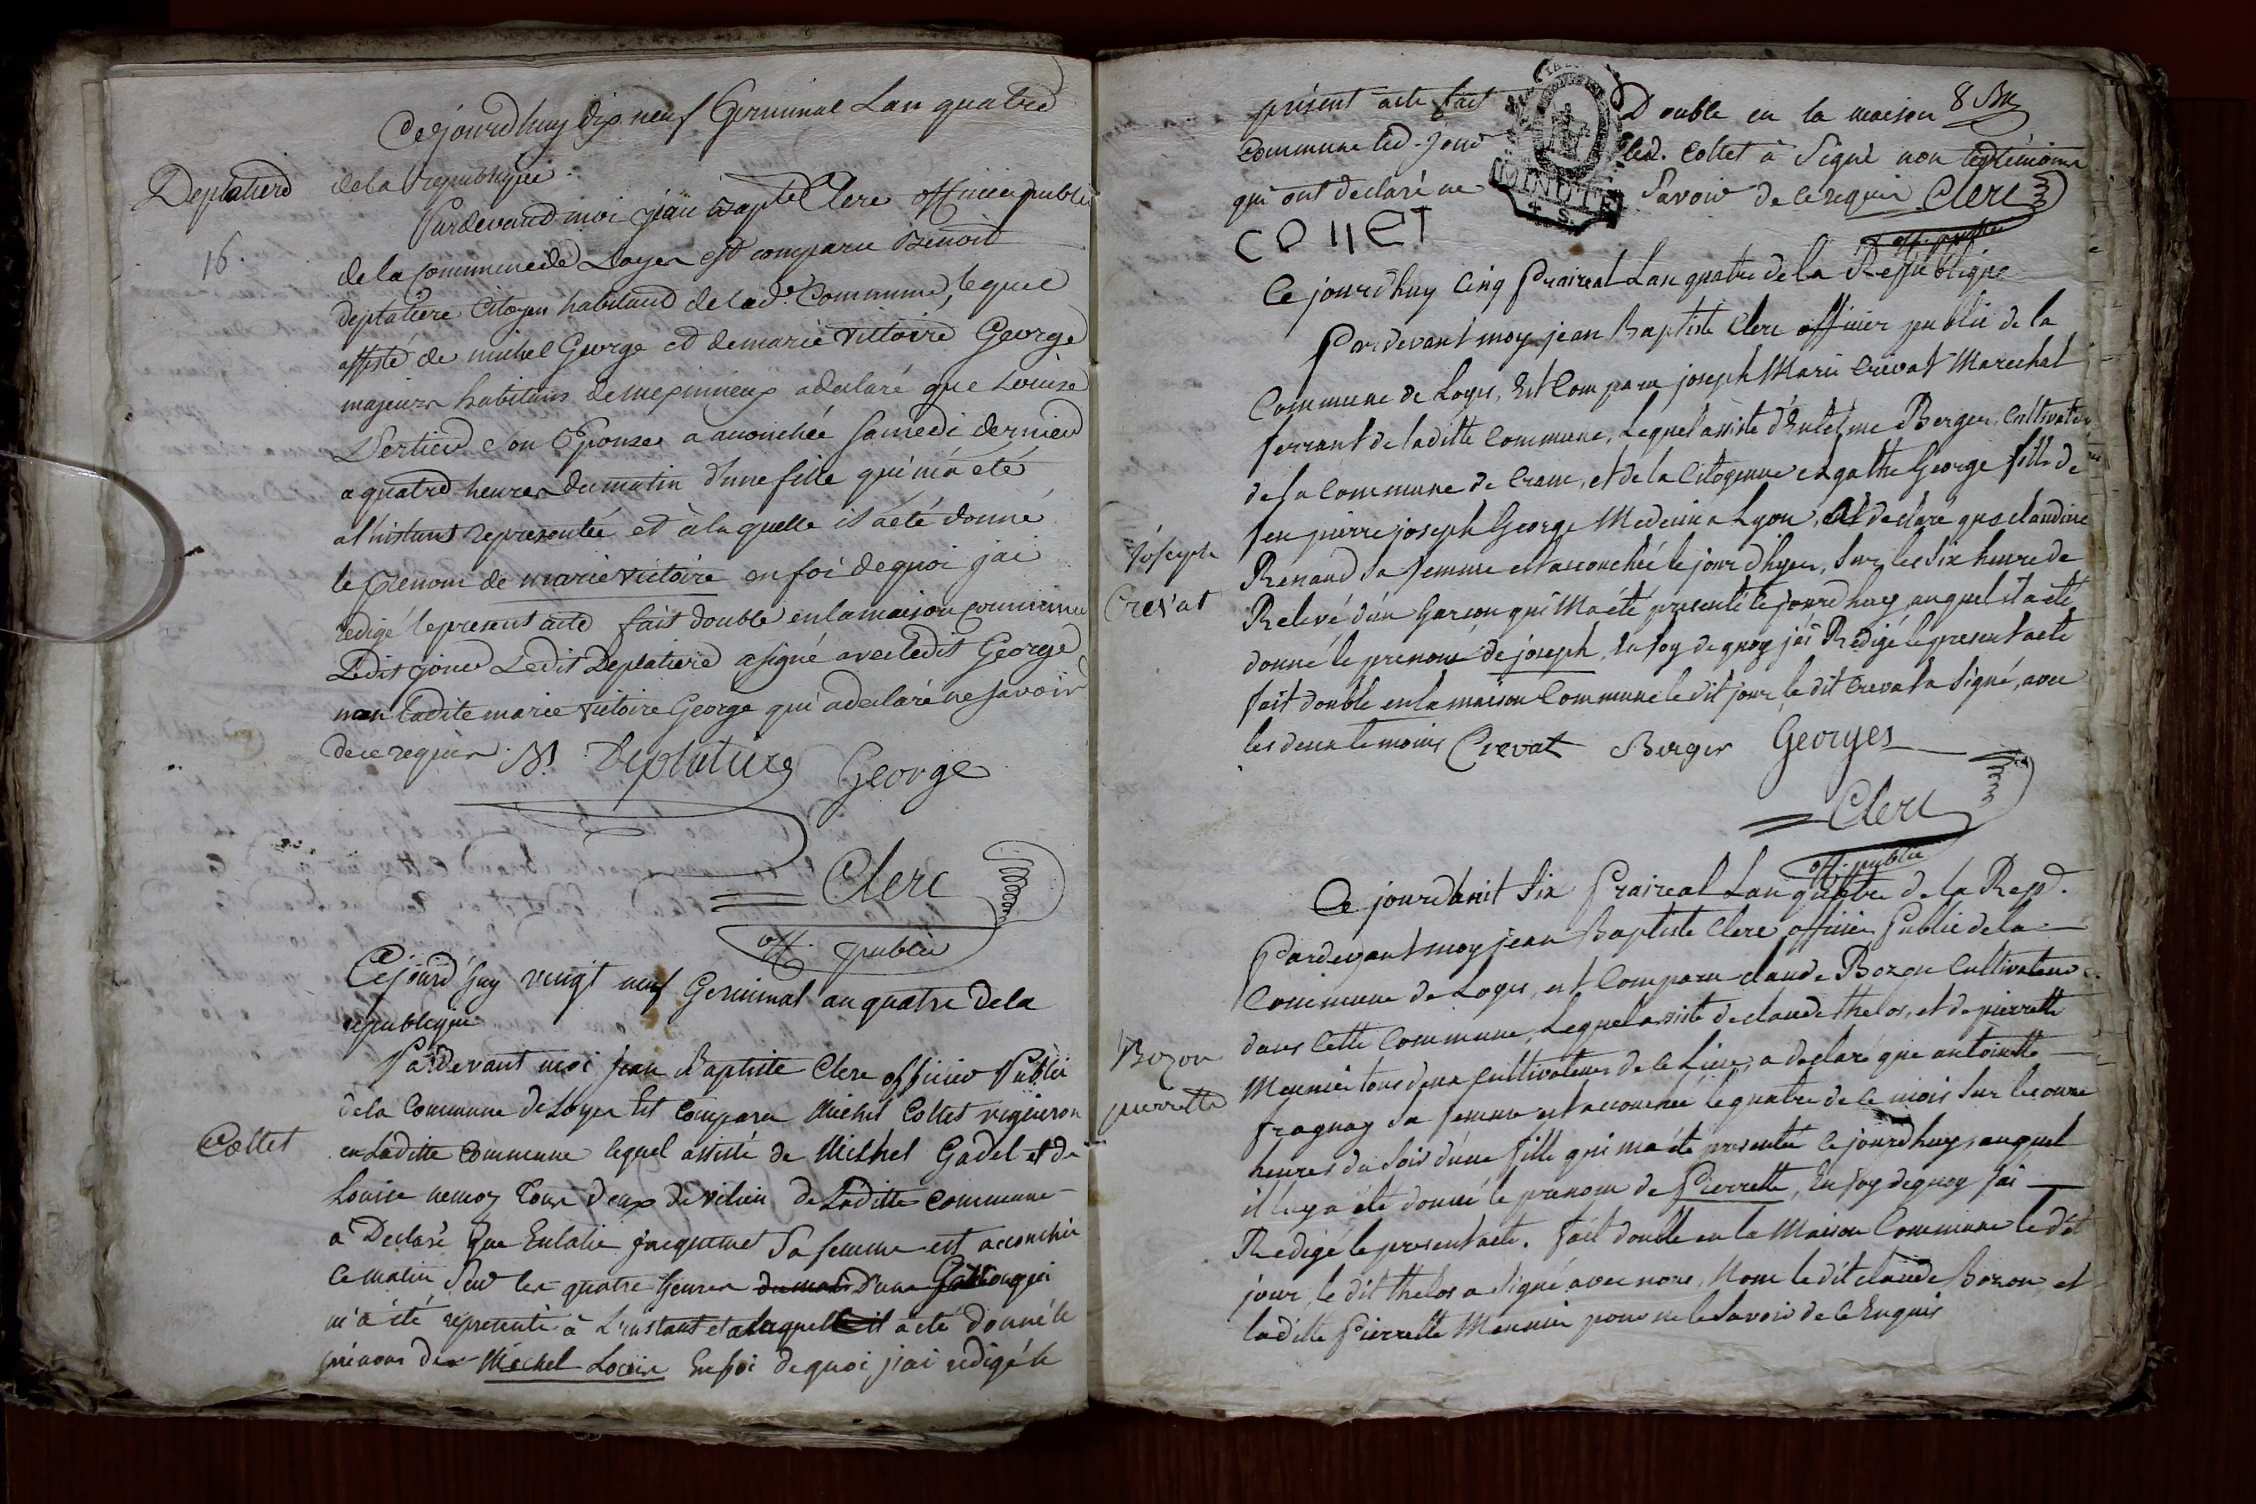 Cejourdhuy dix neuf Germinal Lan quatre
de la republique
Deplatiere
16.
Pardevand moi jean Baptte Clerc officier public
de la Commune de Loyes est comparu Benoit
deplatiere Citoyen habitand de lad.e Commune, lequel
assisté de michel George et de marie Vittoire George
majeurs habitans de meximieux a declaré que Louise
Sertier son Epouse a accouchée samedi dernier
a quatre heures du matin d'une fille qui m'a eté
a l'instant representée et à la quelle il a eté donné
le Prenom de marie victoire en foi de quoi j'ai
redigé le present acte fait double en la maison commune
Ledit jour Ledit Deplatiere a signé avec ledit George
non Ladite marie victoire George qui a declaré ne savoir
de ce requis. B Deplatiere George
Clerc
off. public
Cejourd'huy vingt neuf Germinal an quatre de la
republique
Pardevant moi Jean Baptiste Clerc officier Public
de la Commune de Loyes Est Comparu Michel Collet vigneron
Collet
en Laditte Commune lequel assisté de Michel Gadel et de
Louise nemoz tous deux de vilieu de Laditte Commune
a Declaré Que Eulalie jacquemet Sa femme est accouchée
ce matin Sur les quatre heures du matin D'une Garcon qui
m'a été representé à L'instant et a laquelle il a été Donné le
prénom de Michel Louis En foi de quoi j'ai redigé le
présent acte fait Double en la maison 8 Bre
commune led. Jour led. Collet à Signé non les temoins
qui ont declaré ne Savoir de ce requis Clerc
MINUTE
off. public
COllET
Ce jourd'huy Cinq Prairéal Lan quatre de la Republique
Par devant moy jean Baptiste Clerc officier public de la
Commune de Loyes, Est Comparu joseph Marie Crevat Marechal
ferrant de laditte Commune, Lequel assisté d'Entelme Berger Cultivateur
de la Commune de Crans, et de la Citoyenne Agathe George fille de
feu pierre joseph George Medecin a Lyon, a declaré que claudine
Joseph
Crevat
Renaud Sa femme est accouchée le jour d'hyer, Sur les Six heure de
Relevé d'un Garcon qui M'a été presenté ce jourd'huy, auquel il a été
donné le prenom de joseph, En foy de quoy j'ai Rédigé le present acte
fait double en la maison Commune le dit jour, le dit Crevat a Signé, avec
les deux temoins Crevat Berger Georges
Clerc
off. public
Ce jourd'huit Six Prairéal Lan quatre de la Rep.
Pardevant moy jean Baptiste Clerc officier Public de la
Commune de Loyes, est Comparu claude Bozon Cultivateur
dans Cette Commune, Lequel assisté de claude thelos, et de pierrette
Bozon
pierrette
Meunier tous deux Cultivateurs de ce Lieu, a declaré que antoinette
fragnay Sa femme est accouchée le quatre de ce mois Sur les onze
heures du Soir d'une fille qui m'a été presentée ce jourd'huy, auquel
il luy a été donné le prenom de Pierrette, En foy de quoy j'ai
Redigé le present acte. fait double en la Maison Commune le dit
jour, le dit thelos a Signé avec nous, Non le dit claude Bozon et
laditte Pierrette Meunier pour ne le Savoir de ce Enquis